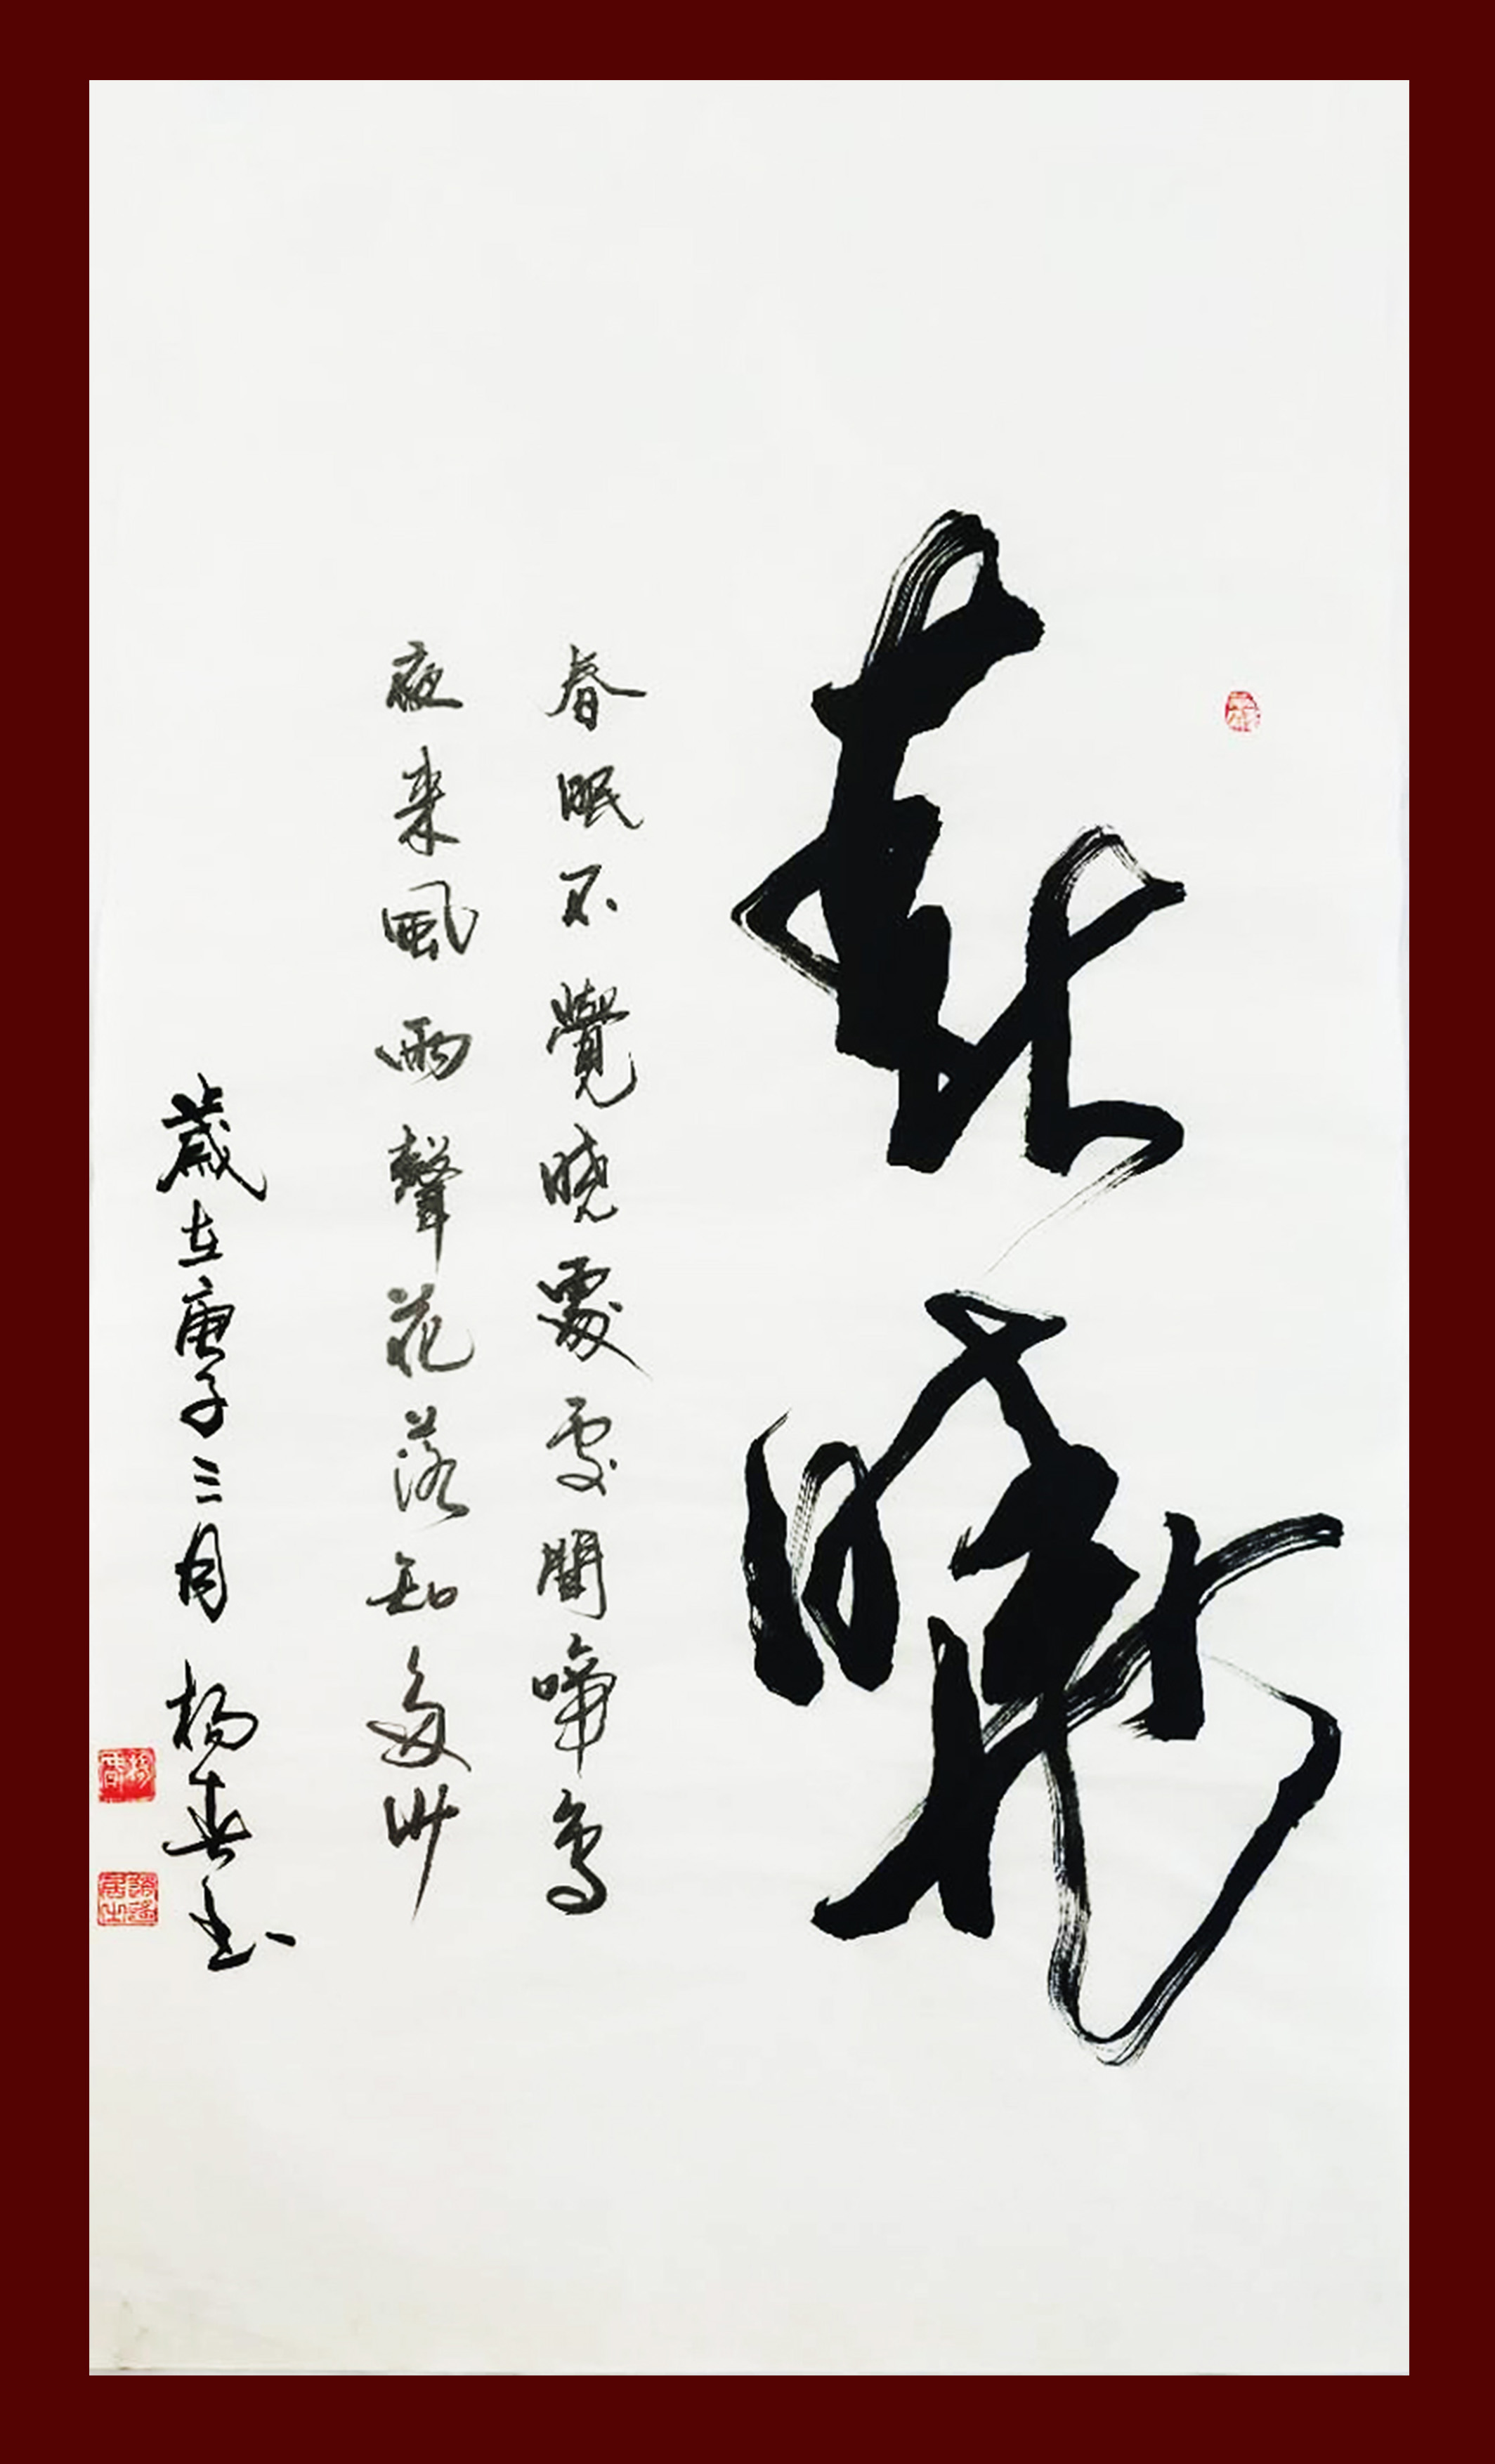 春曉
春眠不覺曉處處聞啼鳥
夜来風雨聲花落知多少
歲在庚子三月 楊春书